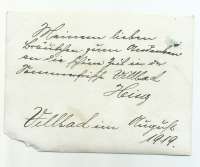 Meinem lieben
Bräutchen zum Andenken
an die schöne Zeit in der
Sommerfrische Villbad
Heinz
Villbad im August
1919.